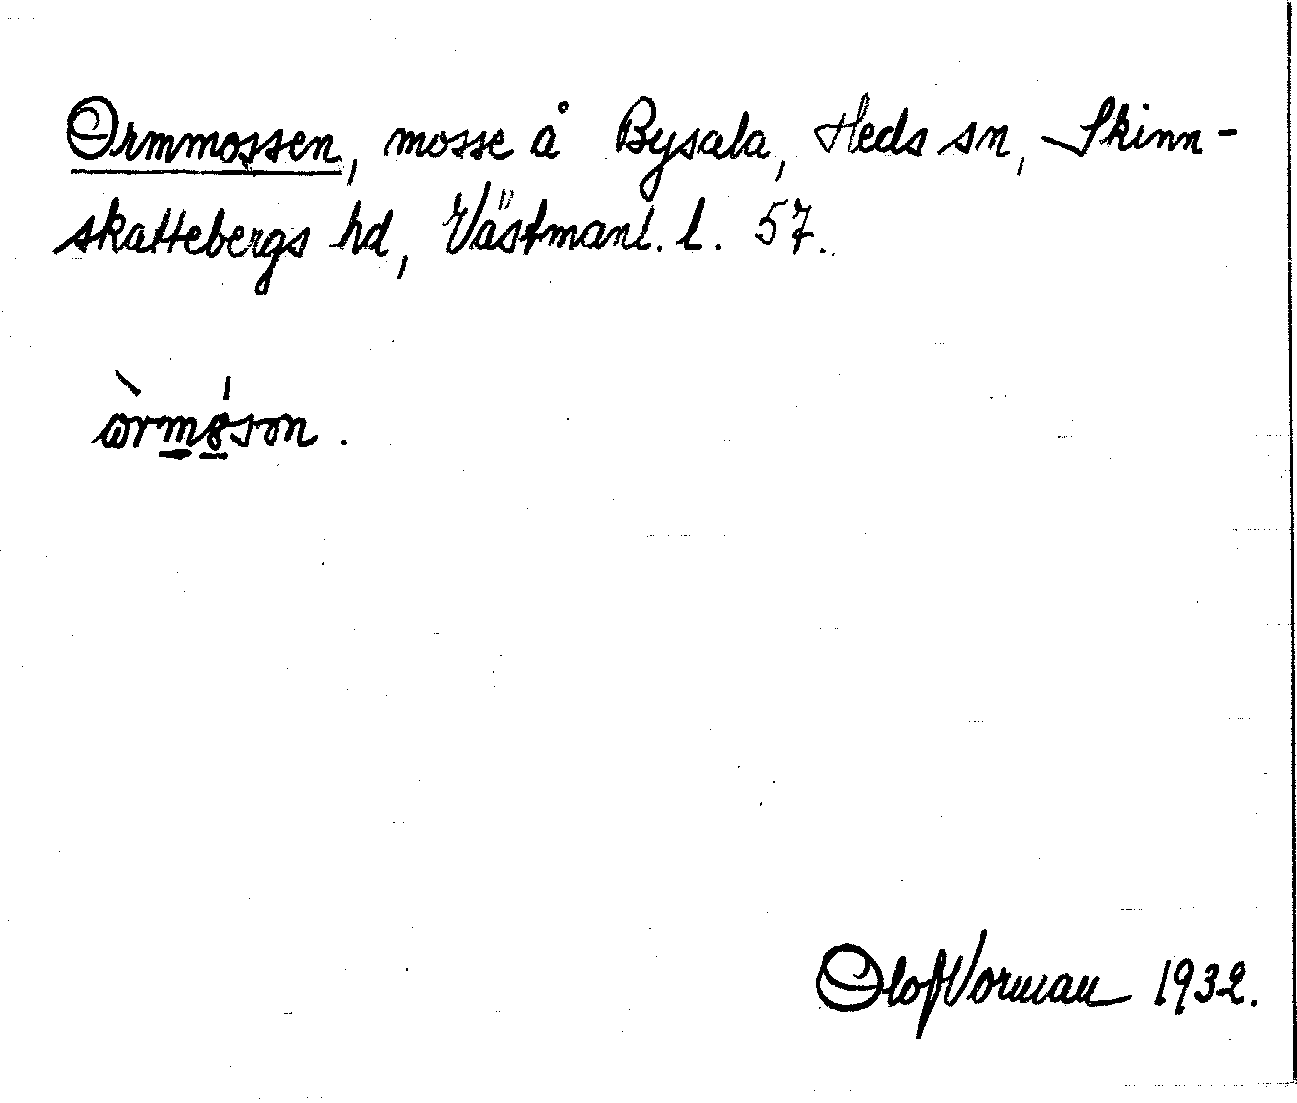 Ormmossen, mosse å Bysala, Heds sn, Skinn-
skattebergs hd, Västmanl. l. 57.
Olof Vorman 1932.